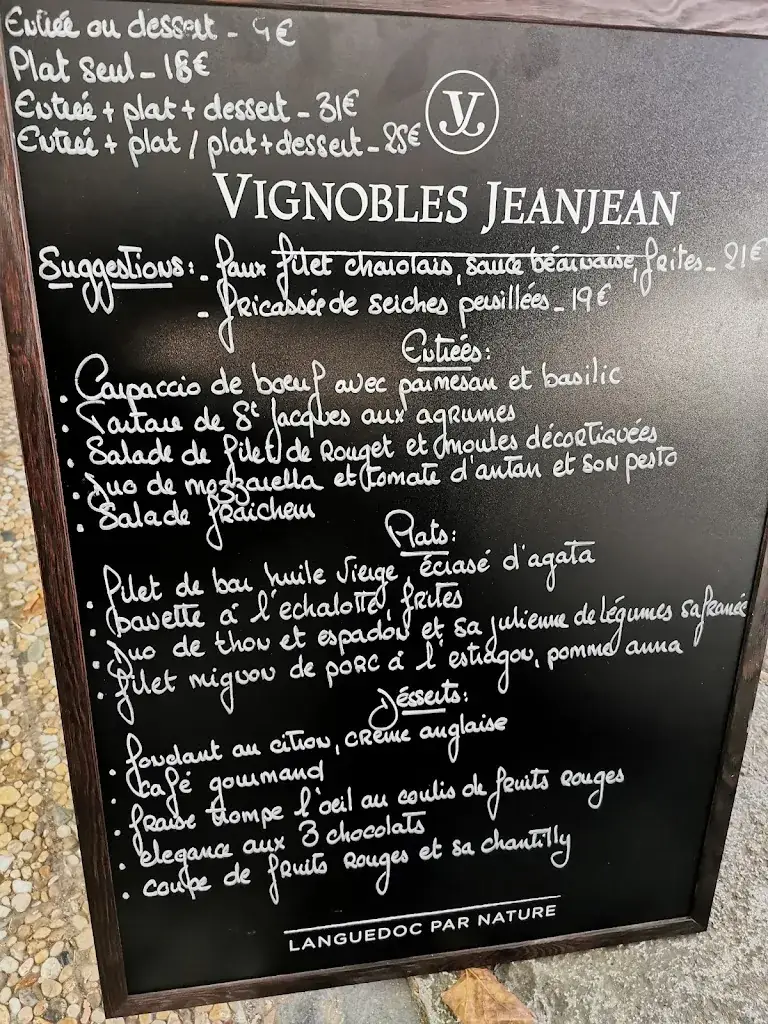 Entrée ou dessert - 9€
Plat seul - 18€
Entrée + plat + dessert - 31€
Entrée + plat / plat + dessert - 25€
VJ
VIGNOBLES JEANJEAN
Suggestions: - faux filet charolais, sauce béarnaise, frites - 21€
- fricassée de seiches persillées - 19€
Entrées:
. Carpaccio de boeuf avec parmesan et basilic
. Tartare de St Jacques aux agrumes
. Salade de filet de Rouget et moules décortiquées
. Duo de mozzarella et tomate d'antan et son pesto
. Salade fraicheur
Plats:
. Filet de bar huile vierge, écrasé d'agata
. bavette à l'échalotte, frites
. Duo de thon et espadon et sa julienne de légumes safranée
. filet mignon de porc à l'estragon, pomme anna
Désserts:
. fondant au citron, crème anglaise
. Café gourmand
. fraise trompe l'oeil au coulis de fruits rouges
. élegance aux 3 chocolats
. coupe de fruits Rouges et sa chantilly
LANGUEDOC PAR NATURE